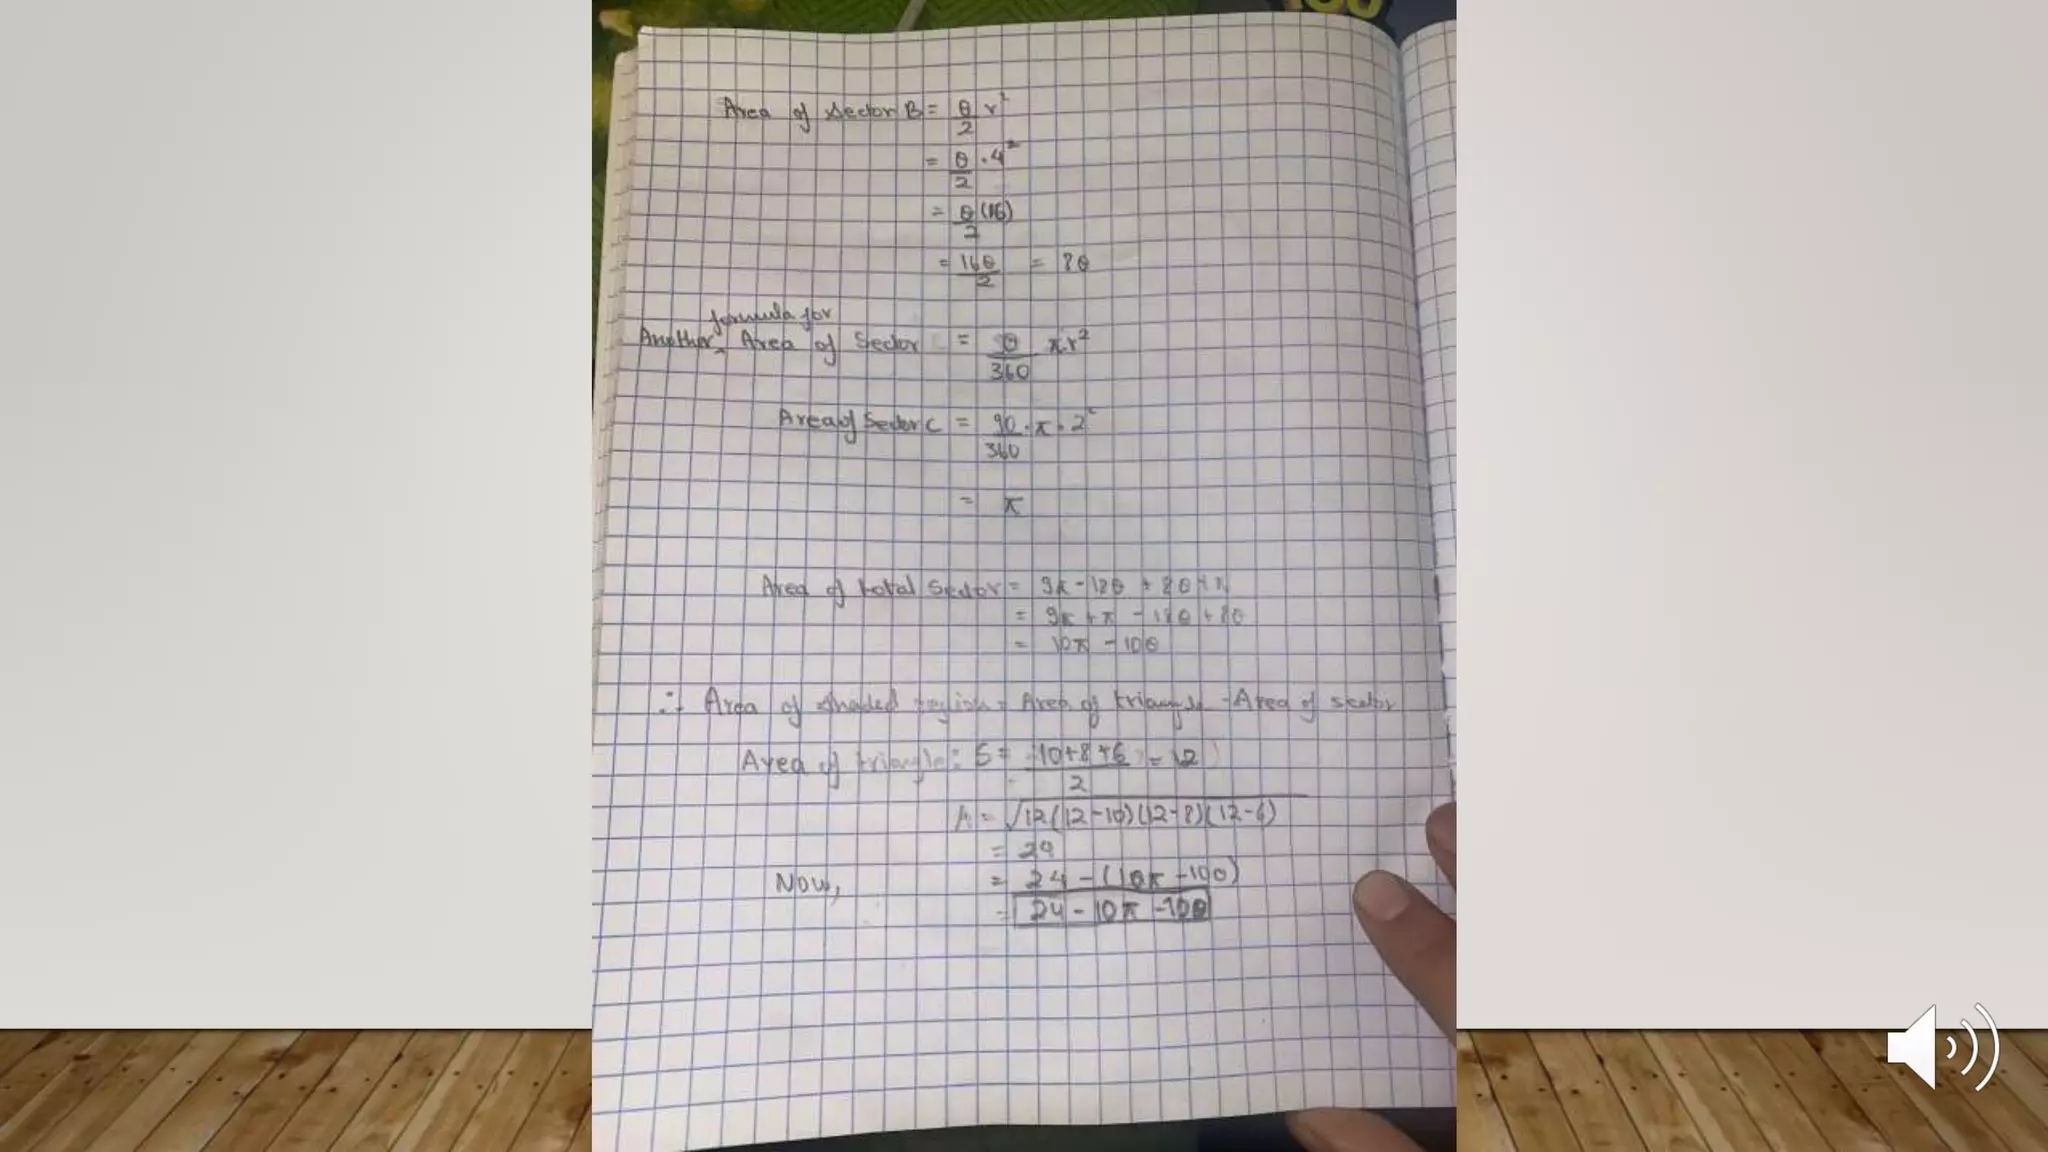 Area of sector B = θ/2 r²
= θ/2 · 4²
= θ(16)/2
= 16θ/2 = 8θ
formula for
Another ^ Area of Sector = θ/360 πr²
Area of Sector C = 90/360 · π · 2²
= π
Area of total Sector = 9π - 18θ + 8θ + π
= 9π + π - 18θ + 8θ
= 10π - 10θ
∴ Area of shaded region = Area of triangle - Area of sector
Area of triangle: S = 10+8+6/2 = 12
A = √12(12-10)(12-8)(12-6)
= 24
Now, = 24 - (10π - 10θ)
= 24 - 10π - 10θ